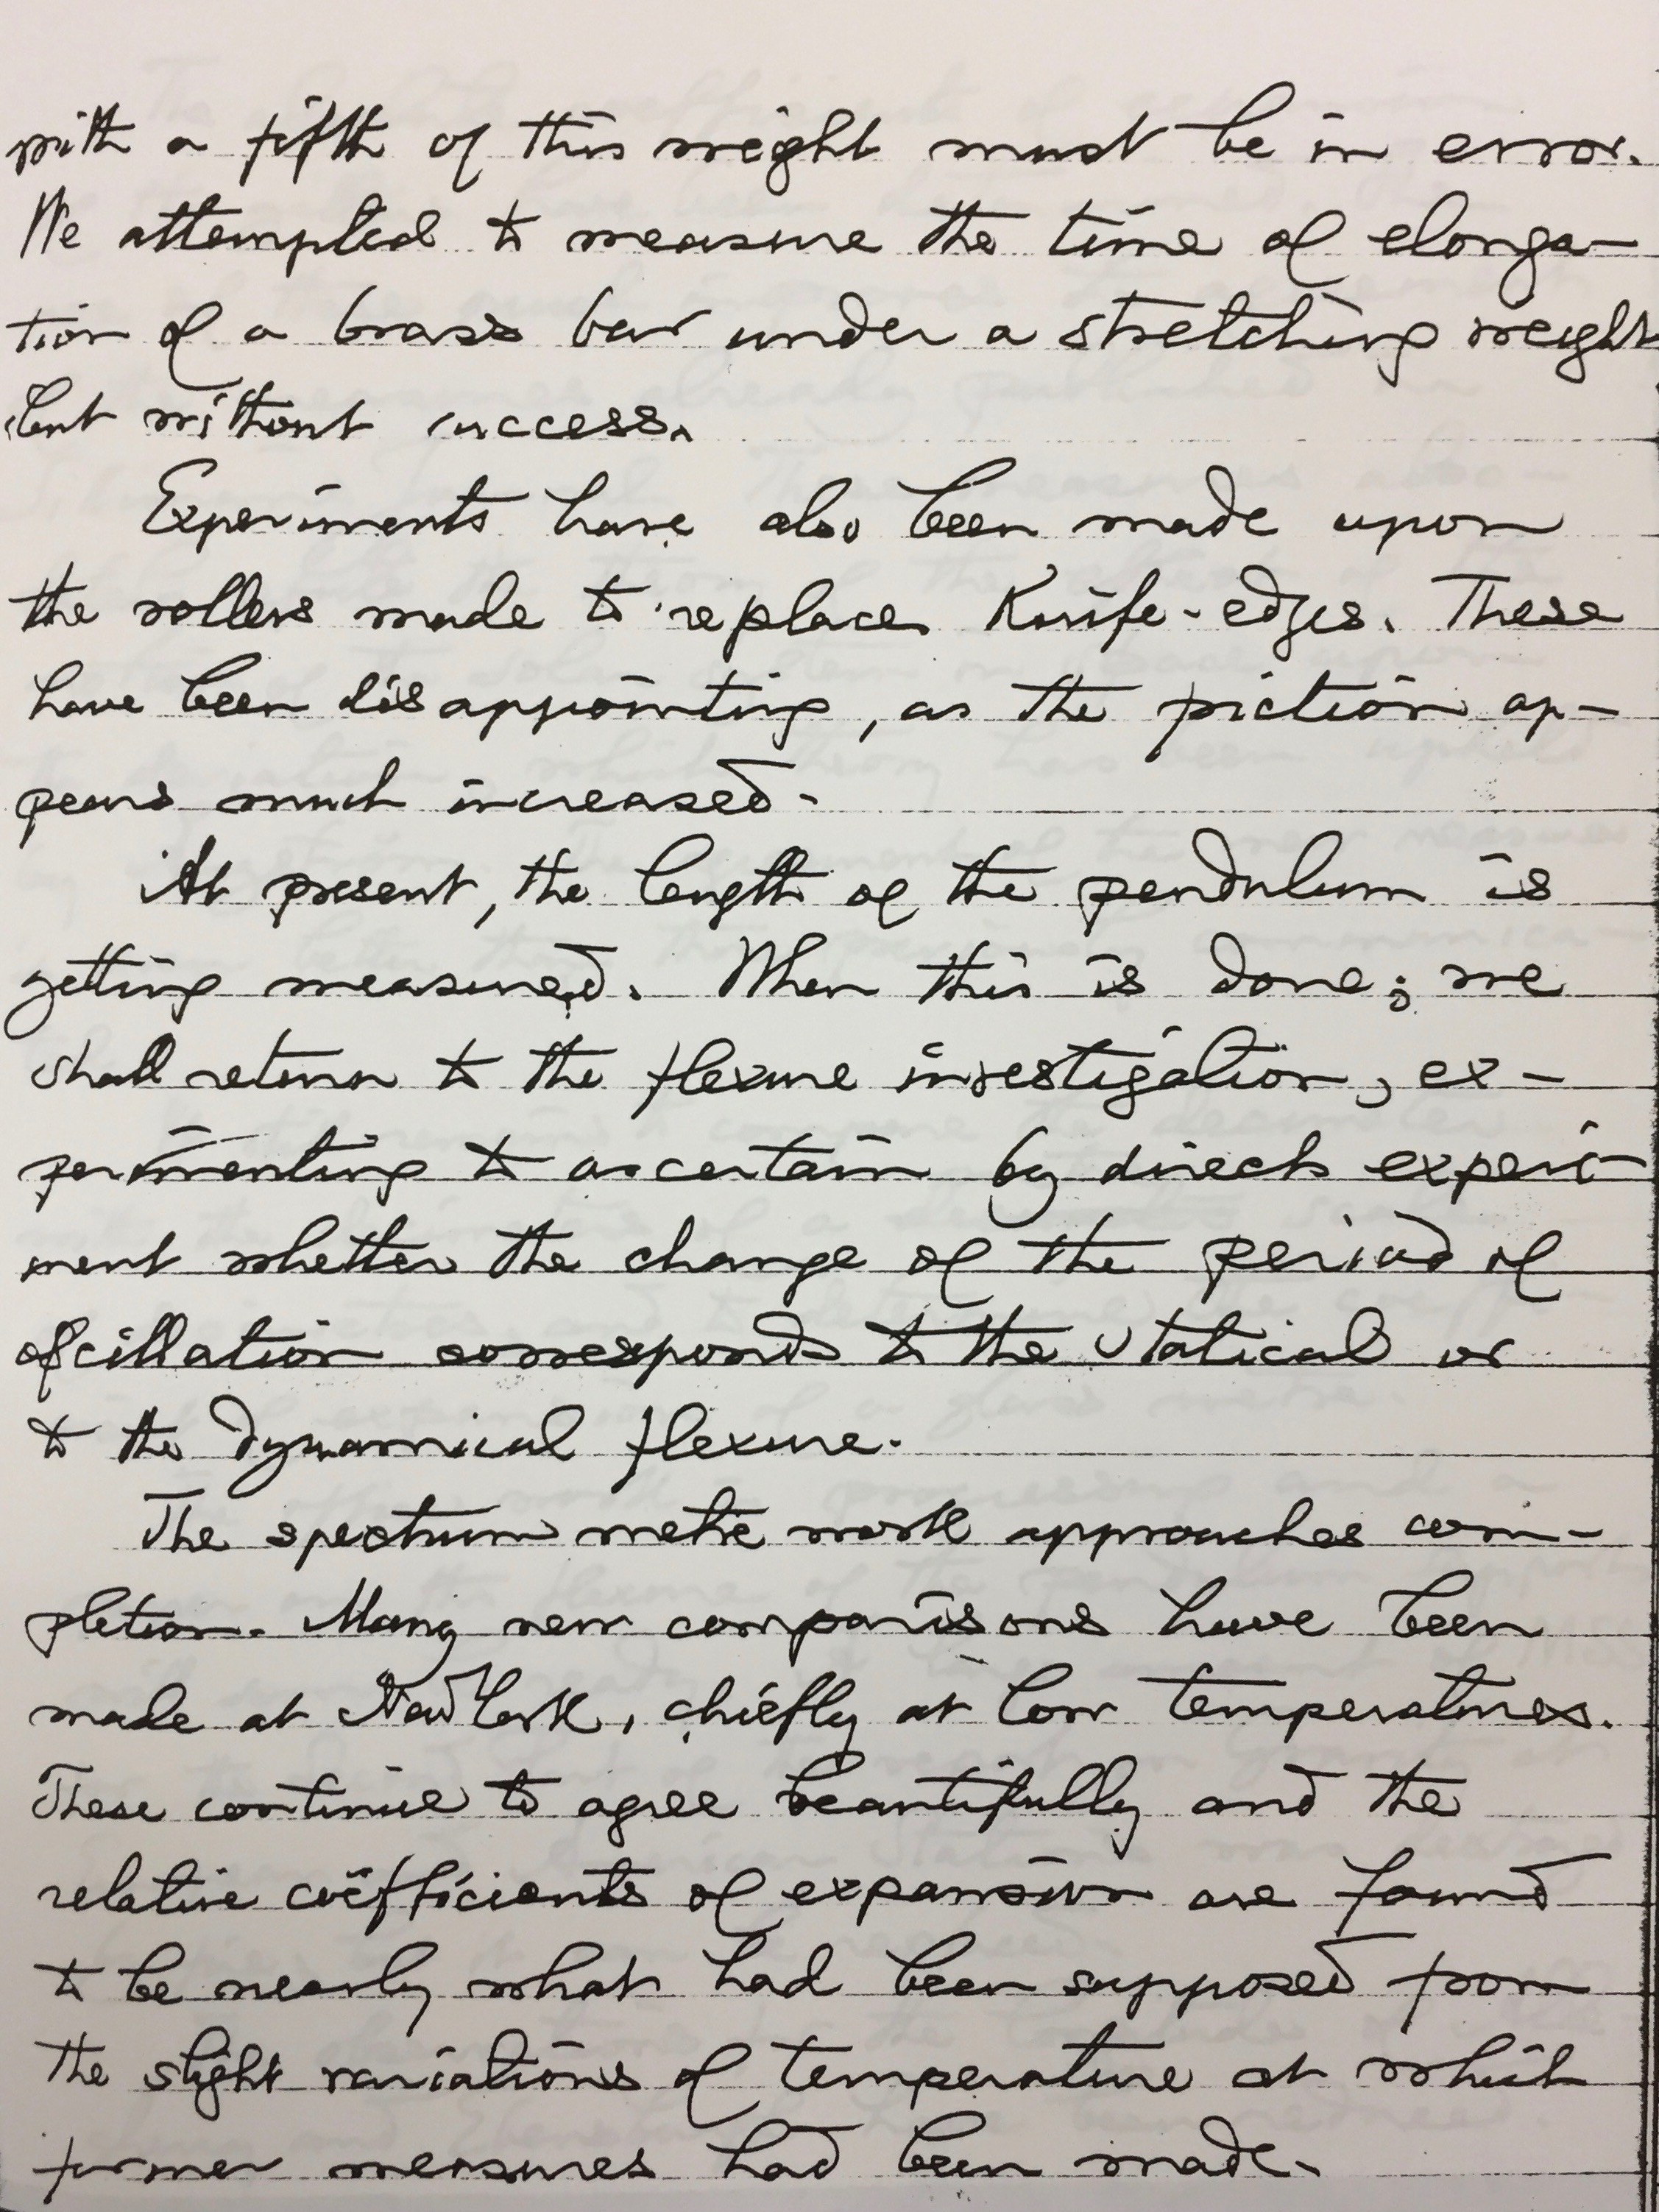 with a fifth of this weight must be in error.
We attempted to measure the time of elonga-
tion of a brass bar under a stretching weight
but without success.
Experiments have also been made upon
the rollers made to replace Knife-edges. These
have been disappointing, as the friction ap-
pears much increased.
At present, the length of the pendulum is
getting measured. When this is done; we
shall return to the flexure investigation, ex-
perimenting to ascertain by direct experi-
ment whether the change of the period of
oscillation corresponds to the statical or
to the dynamical flexure.
The spectrum metre work approaches com-
pletion. Many new comparisons have been
made at New York, chiefly at low temperatures.
These continue to agree beautifully and the
relative coëfficients of expansion are found
to be nearly what had been supposed from
the slight variations of temperature at which
former measures had been made.